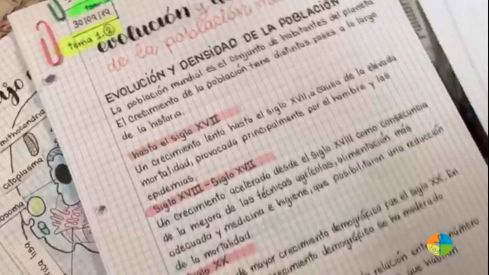 30/09/19
tema 1.②
evolución y
de la población
EVOLUCIÓN Y DENSIDAD DE LA POBLACIÓN
La población mundial es el conjunto de habitantes del planeta
El crecimiento de la población tiene distintas fases a lo largo
de la historia.
Hasta el siglo XVII
Un crecimiento lento hasta el siglo XVII, a causa de la elevada
mortalidad, provocada principalmente por el hambre y las
epidemias.
Siglo XVIII - Siglo XVII
Un crecimiento acelerado desde el siglo XVIII como consecuencia
de la mejora de las técnicas agrícolas, alimentación más
adecuada y medicina e higiene, que posibilitaron una reducción
de la mortalidad.
Siglo XX
de mayor crecimiento demográfico fue el siglo XX. En
crecimiento demográfico se ha moderado
relación entre número
que habitan
mitocondria
citoplasma
lisa